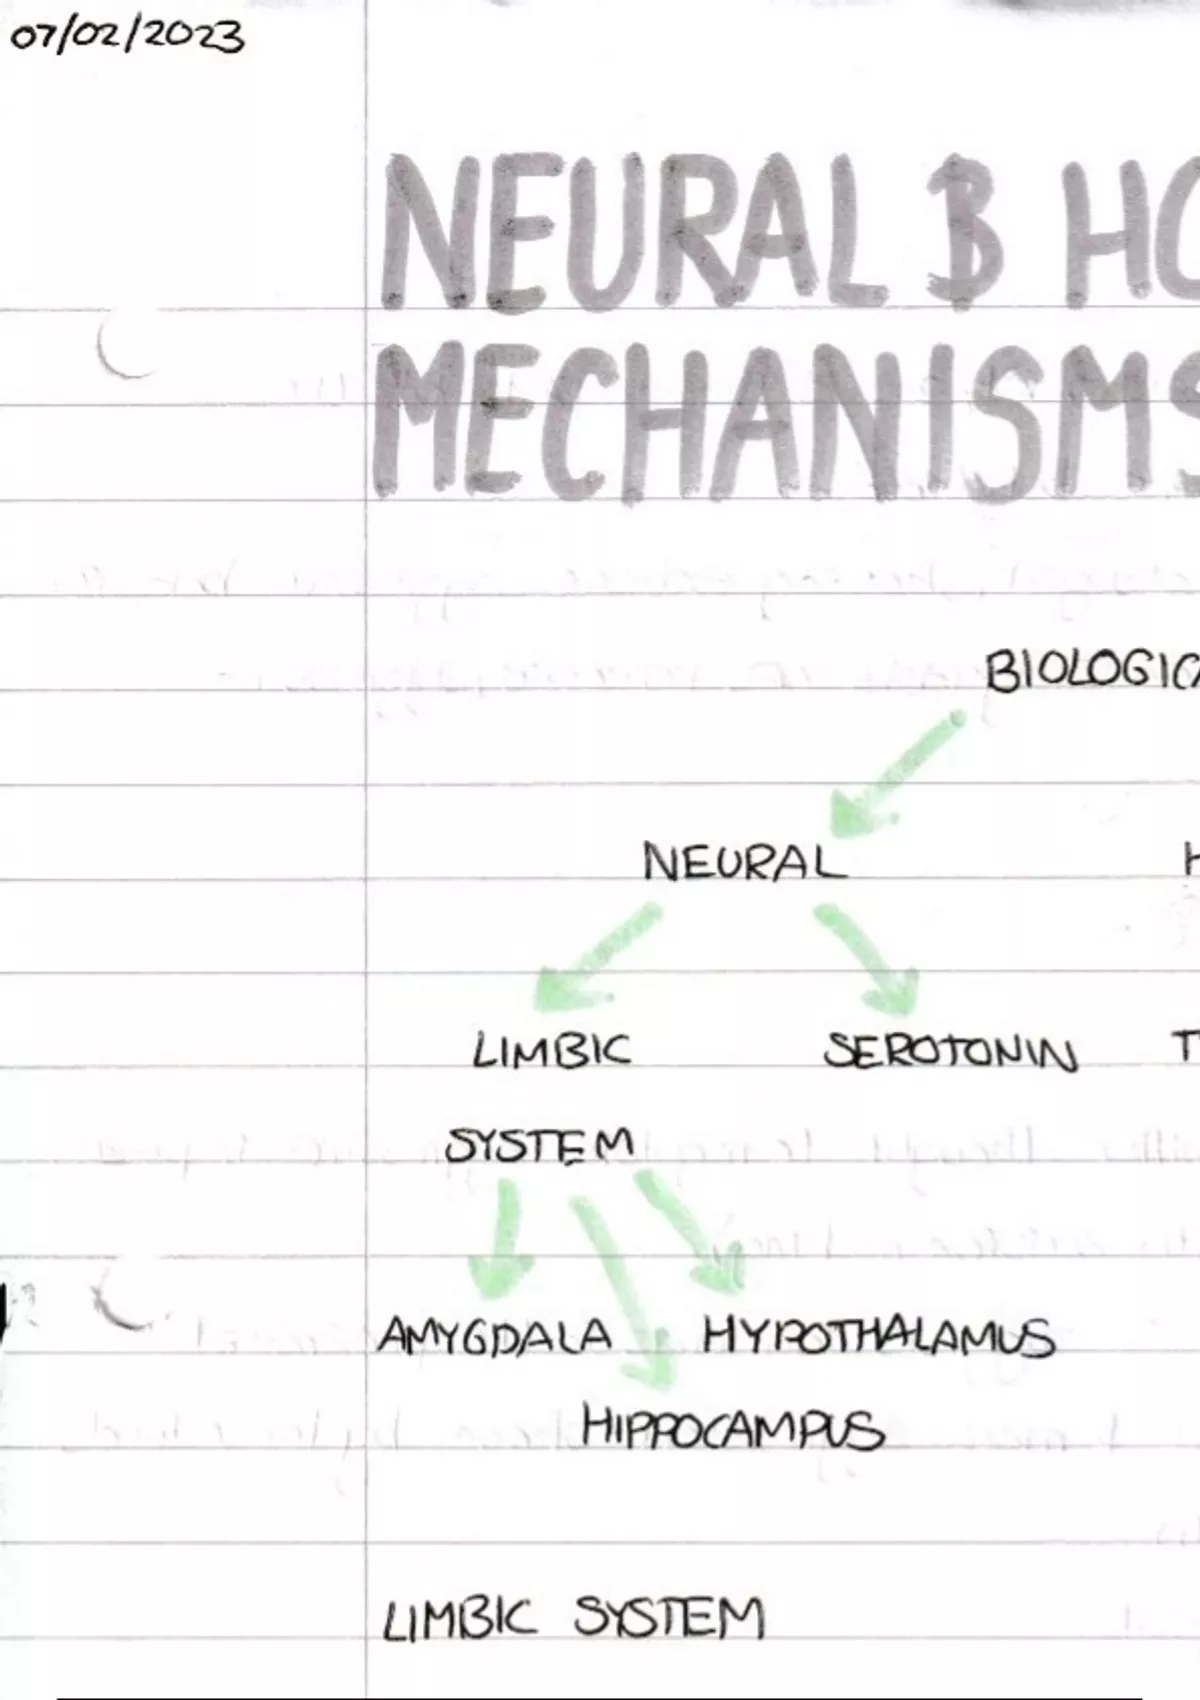 07/02/2023
NEURAL & HO
MECHANISMS
BIOLOGICA
NEURAL H
LIMBIC SEROTONIN T
SYSTEM
AMYGDALA HYPOTHALAMUS
HIPPOCAMPUS
LIMBIC SYSTEM